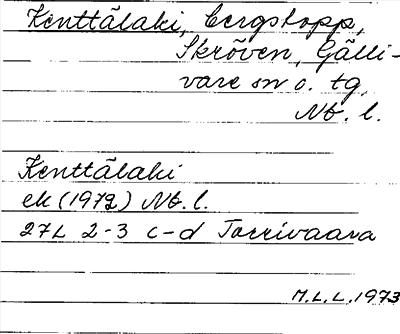 Kenttälaki, bergstopp,
Skröven, Gälli-
vare sn o. tg,
Nb. l.
Kenttälaki
ek (1972) Nb. l.
27L 2-3 c-d Torrivaara
M.L.L. 1973